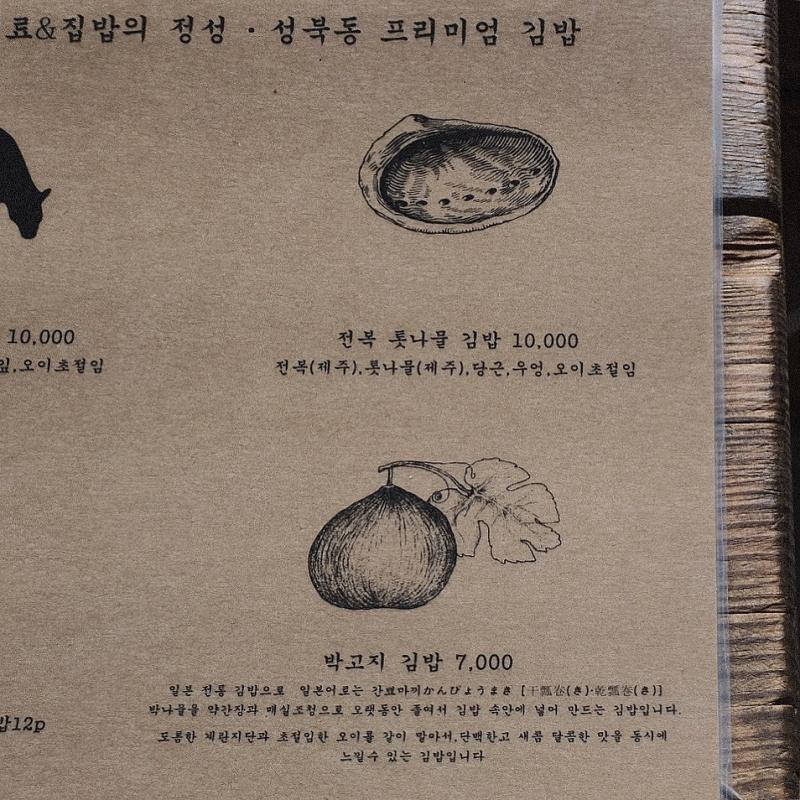 료&집밥의 정성 · 성북동 프리미엄 김밥
10,000
잎,오이초절임
전복 톳나물 김밥 10,000
전복(제주),톳나물(제주),당근,우엉,오이초절임
박고지 김밥 7,000
일본 전통 김밥으로 일본어로는 간표마끼かんぴょうまき [干瓢巻(き)·乾瓢巻(き)]
박나물을 약간장과 매실조청으로 오랫동안 졸여서 김밥 속안에 넣어 만드는 김밥입니다.
밥12p
도톰한 계란지단과 초절임한 오이를 같이 말아서,담백한고 새콤 달콤한 맛을 동시에
느낄수 있는 김밥입니다